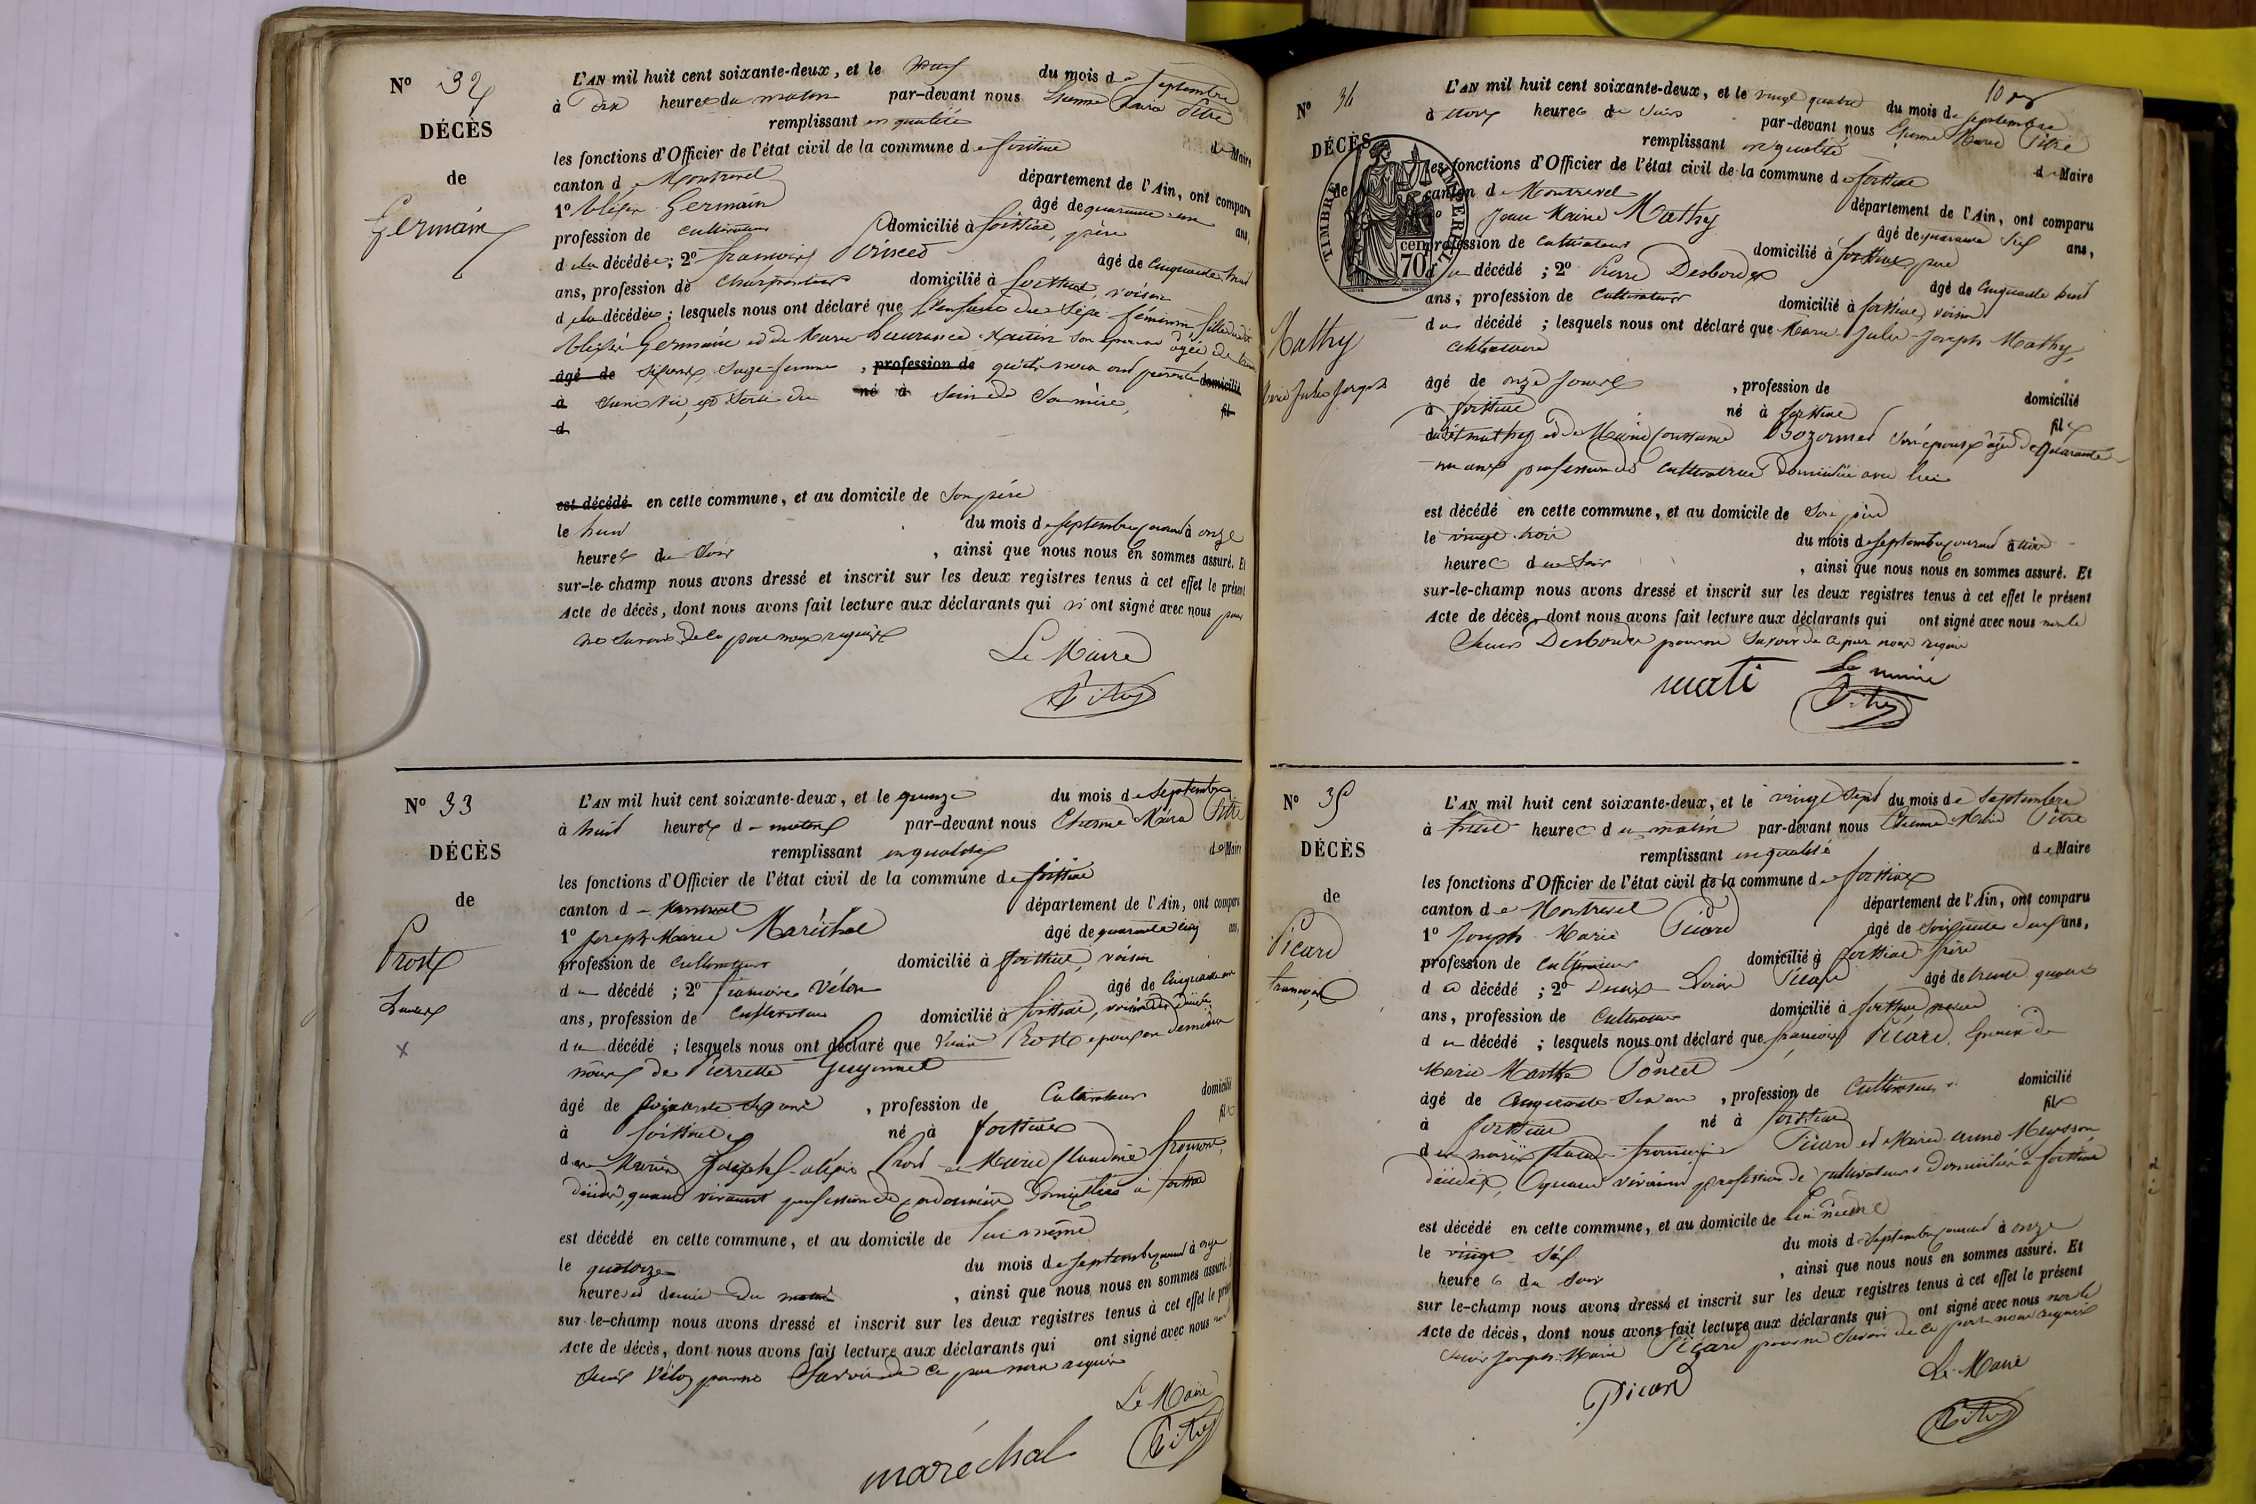 N° 32
DÉCÈS
de
Germain
L'AN mil huit cent soixante-deux, et le neuf du mois de septembre
à Dix heures du matin par-devant nous Etienne Marie Pitre
remplissant en qualité
de Maire
les fonctions d'Officier de l'état civil de la commune de foissiat
canton de Montrevel département de l'Ain, ont comparu
1° Germain âgé de quarante ans,
profession de cultivateur domicilié à foissiat, père
de la décédée; 2° françois âgé de cinquante huit
ans, profession de charpentier domicilié à foissiat, voisin
de la décédée; lesquels nous ont déclaré que l'enfant du sexe féminin fille dudit
Germain et de Marie son épouse âgée de
âgé de sage-femme, profession de qu'ils nous ont présenté domicilié
à sans vie, est sortie du né à sein de sa mère, fil
d
est décédé en cette commune, et au domicile de son père
le huit du mois de septembre courant à onze
heures du soir, ainsi que nous nous en sommes assuré. Et
sur-le-champ nous avons dressé et inscrit sur les deux registres tenus à cet effet le présent
Acte de décès, dont nous avons fait lecture aux déclarants qui n'ont signé avec nous pour
ne savoir de ce par nous requis
Le Maire
Pitre
N° 33
DÉCÈS
de
Prost
X
L'AN mil huit cent soixante-deux, et le quinze du mois de septembre
à huit heures du matin par-devant nous Etienne Marie Pitre
remplissant en qualité de Maire
les fonctions d'Officier de l'état civil de la commune de foissiat
canton de Montrevel département de l'Ain, ont comparu
1° Joseph Marie Maréchal âgé de quarante cinq ans,
profession de cultivateur domicilié à foissiat, voisin
du décédé; 2° françois Vélon âgé de cinquante un
ans, profession de cultivateur domicilié à foissiat, voisin
du décédé; lesquels nous ont déclaré que Prost époux en dernière
noces de Pierrette Guyonnet
âgé de soixante sept ans, profession de Cultivateur domicilié
à foissiat né à foissiat fils
de Joseph Prost et Marie Claudine
décédés, quand vivaient profession de domiciliés à foissiat
est décédé en cette commune, et au domicile de lui même
le quatorze du mois de septembre courant à onze
heures et demie du matin, ainsi que nous nous en sommes assuré. Et
sur-le-champ nous avons dressé et inscrit sur les deux registres tenus à cet effet le présent
Acte de décès, dont nous avons fait lecture aux déclarants qui ont signé avec nous non le
sieur Vélon pour ne savoir de ce par nous requis
Le Maire
Pitre
maréchal
10
N° 34
DÉCÈS
de
Mathy
Marie Jules Joseph
TIMBRE IMPÉRIAL
70 cen
L'AN mil huit cent soixante-deux, et le vingt quatre du mois de septembre
à heures du soir par-devant nous Etienne Marie Pitre
remplissant en qualité de Maire
les fonctions d'Officier de l'état civil de la commune de foissiat
canton de Montrevel département de l'Ain, ont comparu
1° Jean Marie Mathy âgé de quarante six ans,
profession de cultivateur domicilié à foissiat, père
du décédé; 2° Pierre Desbordes âgé de cinquante huit
ans, profession de cultivateur domicilié à foissiat, voisin
du décédé; lesquels nous ont déclaré que Marie Jules Joseph Mathy,
célibataire
âgé de onze jours, profession de domicilié
à foissiat né à foissiat fils
dudit mathy et de Marie son épouse âgée de quarante
un ans profession de cultivatrice domiciliée avec lui
est décédé en cette commune, et au domicile de son père
le vingt trois du mois de septembre courant à
heures du soir, ainsi que nous nous en sommes assuré. Et
sur-le-champ nous avons dressé et inscrit sur les deux registres tenus à cet effet le présent
Acte de décès, dont nous avons fait lecture aux déclarants qui ont signé avec nous non le
sieur Desbordes pour ne savoir de ce par nous requis
mati
Le maire
Pitre
N° 35
DÉCÈS
de
Picard
françois
L'AN mil huit cent soixante-deux, et le vingt sept du mois de septembre
à huit heures du matin par-devant nous Etienne Marie Pitre
remplissant en qualité de Maire
les fonctions d'Officier de l'état civil de la commune de foissiat
canton de Montrevel département de l'Ain, ont comparu
1° Joseph Marie Picard âgé de soixante deux ans,
profession de cultivateur domicilié à foissiat frère
du décédé; 2° Picard âgé de trente quatre
ans, profession de cultivateur domicilié à foissiat neveu
du décédé; lesquels nous ont déclaré que françois Picard, époux de
Marie Marthe Poncet
âgé de cinquante ans, profession de cultivateur domicilié
à foissiat né à foissiat fils
de Picard et Marie Anne
décédés, quand vivaient profession de cultivateurs domiciliés à foissiat
est décédé en cette commune, et au domicile de lui même
le vingt six du mois de septembre courant à onze
heures du soir, ainsi que nous nous en sommes assuré. Et
sur le-champ nous avons dressé et inscrit sur les deux registres tenus à cet effet le présent
Acte de décès, dont nous avons fait lecture aux déclarants qui ont signé avec nous non le
sieur Joseph Marie Picard pour ne savoir de ce par nous requis
Picard
Le Maire
Pitre